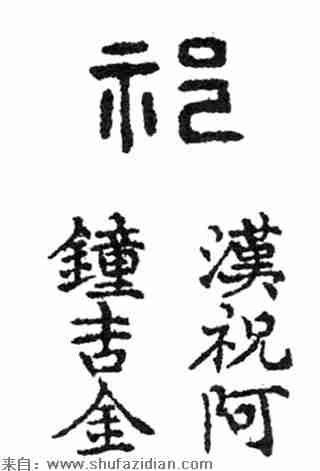 祀
漢祝阿
鐘吉金
来自：www.shufazidian.com